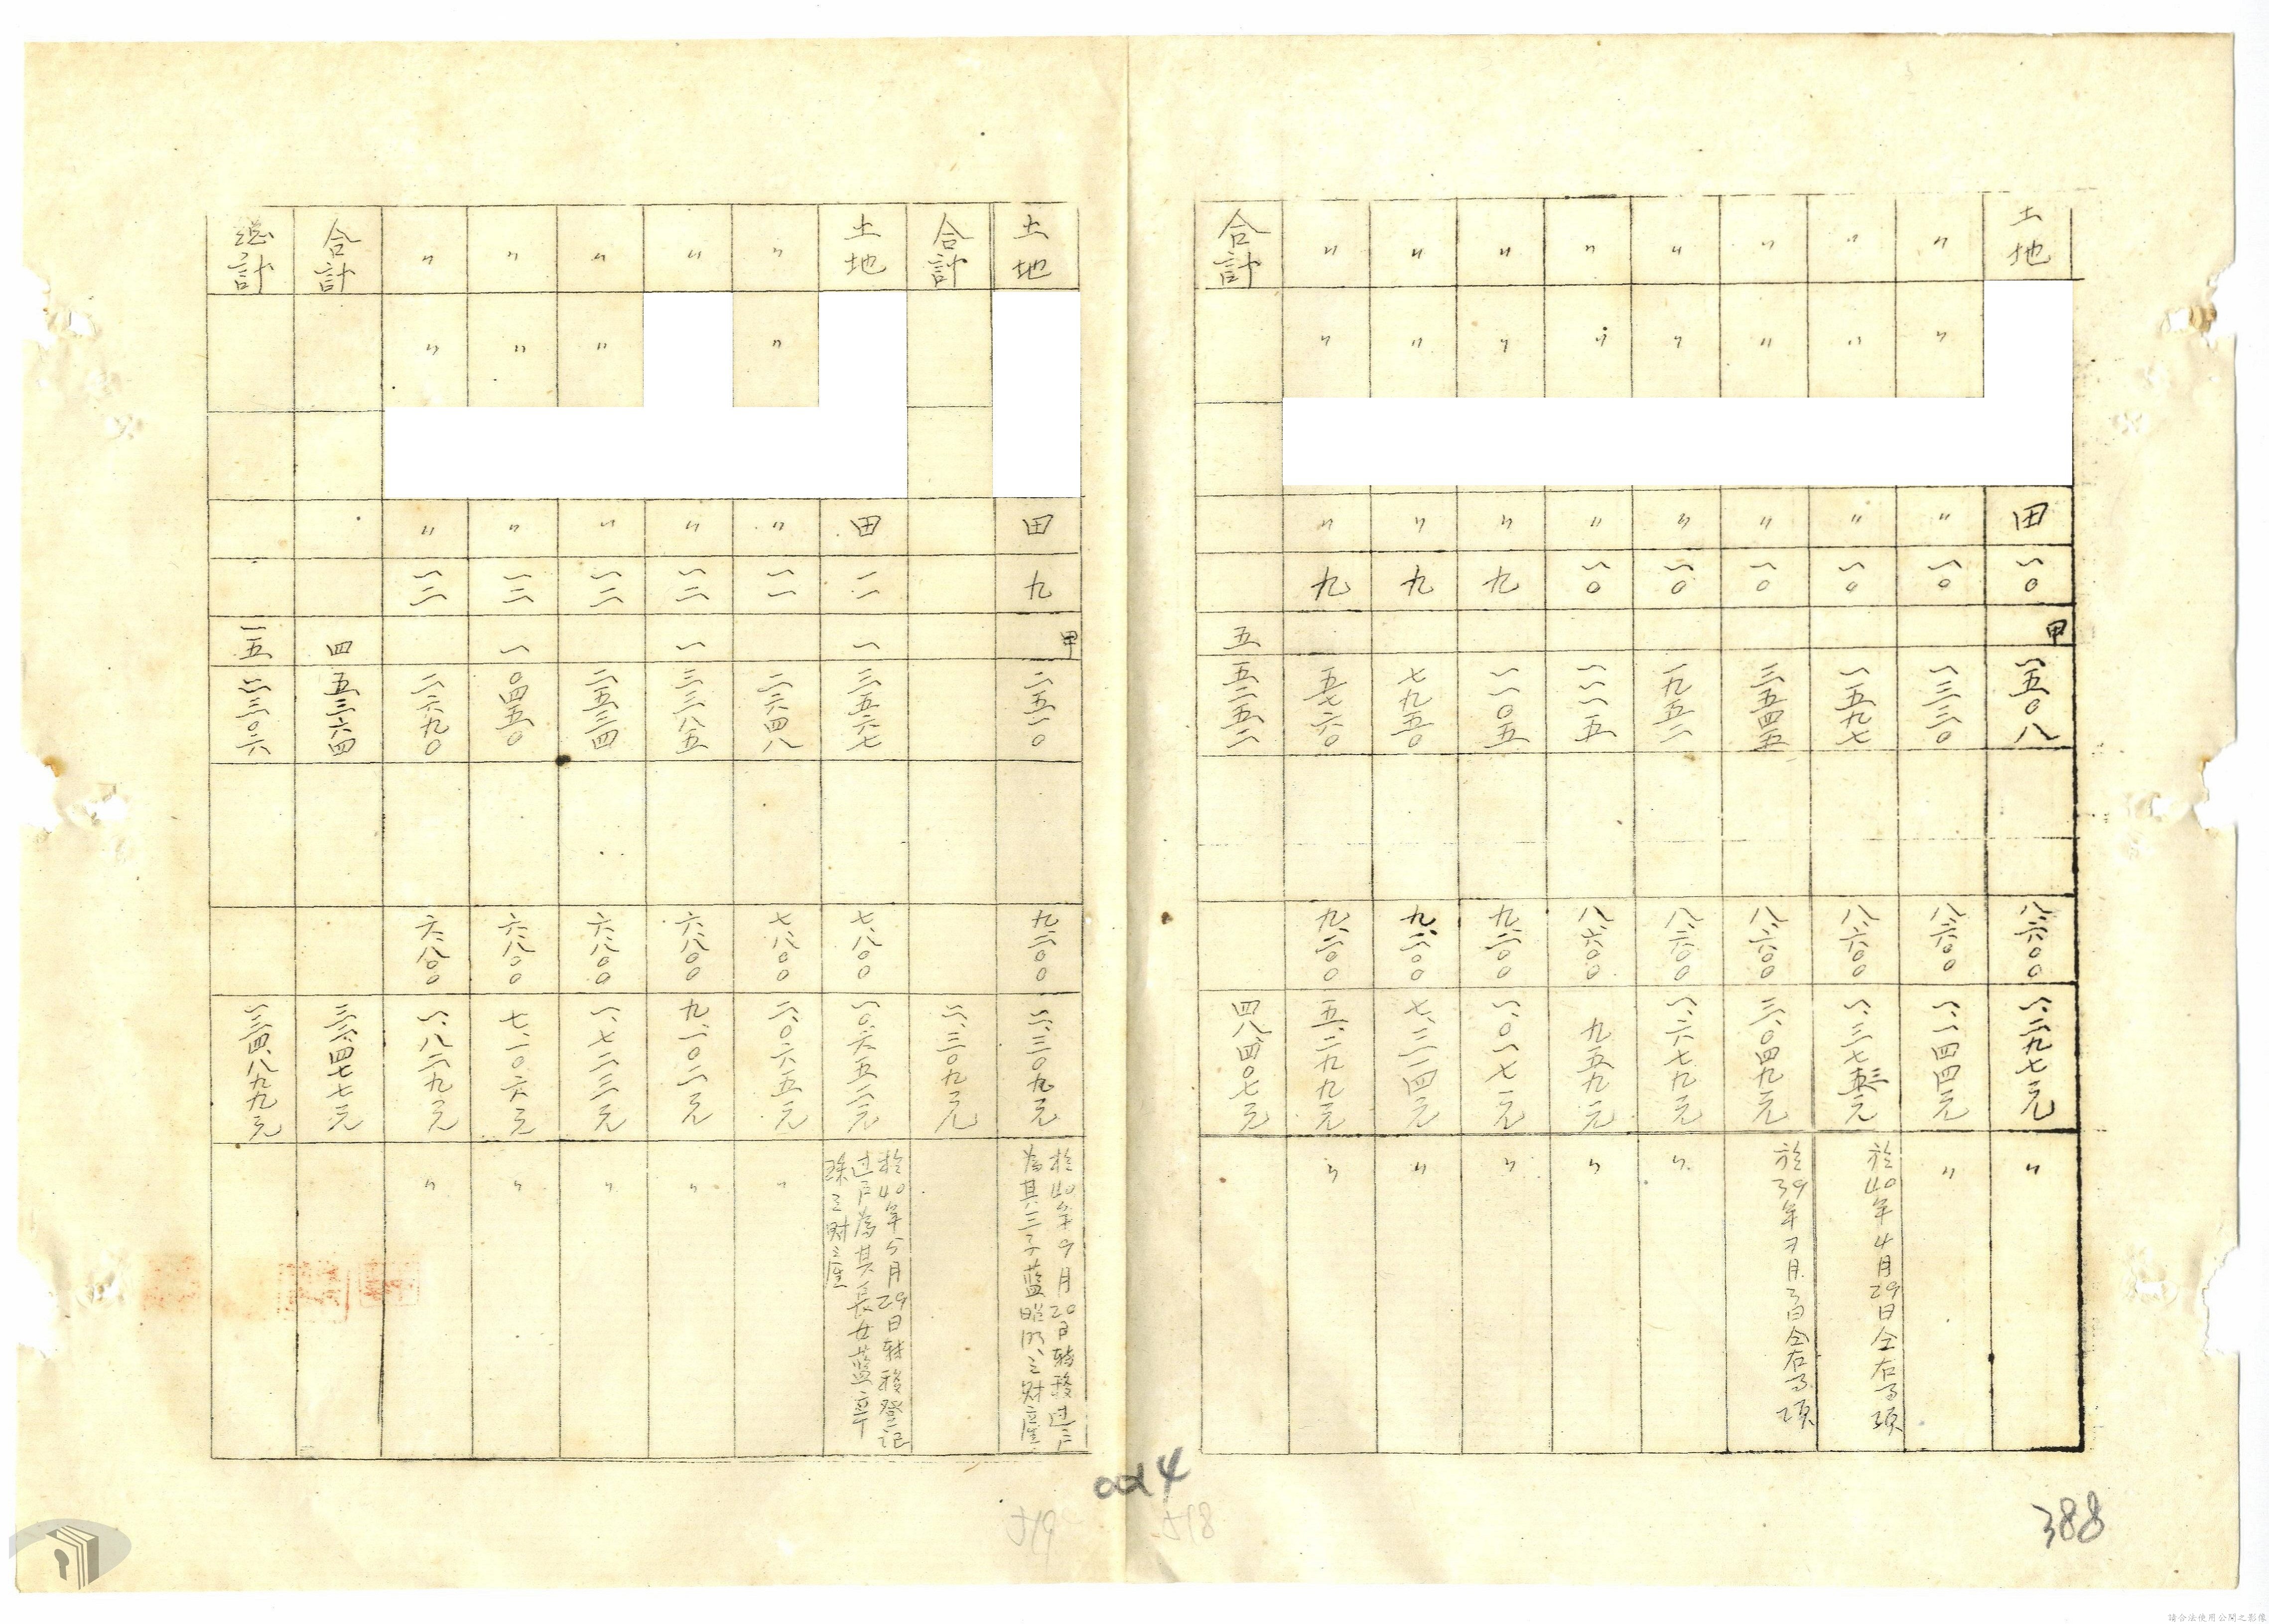 土地 田 一〇 甲 一五〇八 八、六〇〇 一、二九七元 〃
〃 〃 〃 一〇 一三三〇 八、六〇〇 一、一四四元 〃
〃 〃 〃 一〇 一五九七 八、六〇〇 一、三七三元 於40年4月29日仝右事項
〃 〃 〃 一〇 三五四五 八、六〇〇 三、〇四九元 於39年7月3日仝右事項
〃 〃 〃 一〇 一九五二 八、六〇〇 一、六七九元 〃
〃 〃 〃 一〇 一一一五 八、六〇〇 九五九元 〃
〃 〃 〃 九 一一〇五 九、二〇〇 一、〇一七元 〃
〃 〃 〃 九 七九五〇 九、二〇〇 七、三一四元 〃
〃 〃 〃 九 五七六〇 九、二〇〇 五、二九九元 〃
合計 五 五二五二 四八、四〇七元
土地 田 九 甲 二五一〇 九、二〇〇 二、三〇九元 於40年9月20日轉移过户
為其三子藍昭明之財產
合計 二、三〇九元
土地 田 一一 一 三五六七 七、八〇〇 一〇、六五二元 於40年5月29日轉移登記
过户為其長女藍
珠之財產
〃 〃 〃 一一 二六四八 七、八〇〇 二、〇六五元 〃
〃 〃 一二 一 三三八五 六、八〇〇 九、一〇二元 〃
〃 〃 〃 一二 二五三四 六、八〇〇 一、七二三元 〃
〃 〃 〃 一二 一 〇四五〇 六、八〇〇 七、一〇六元 〃
〃 〃 〃 一二 二六九〇 六、八〇〇 一、八二九元 〃
合計 四 五三六四 三二、四七七元
總計 一五 二三〇六 一三四、八九九元
004
388
請合法使用公開之影像